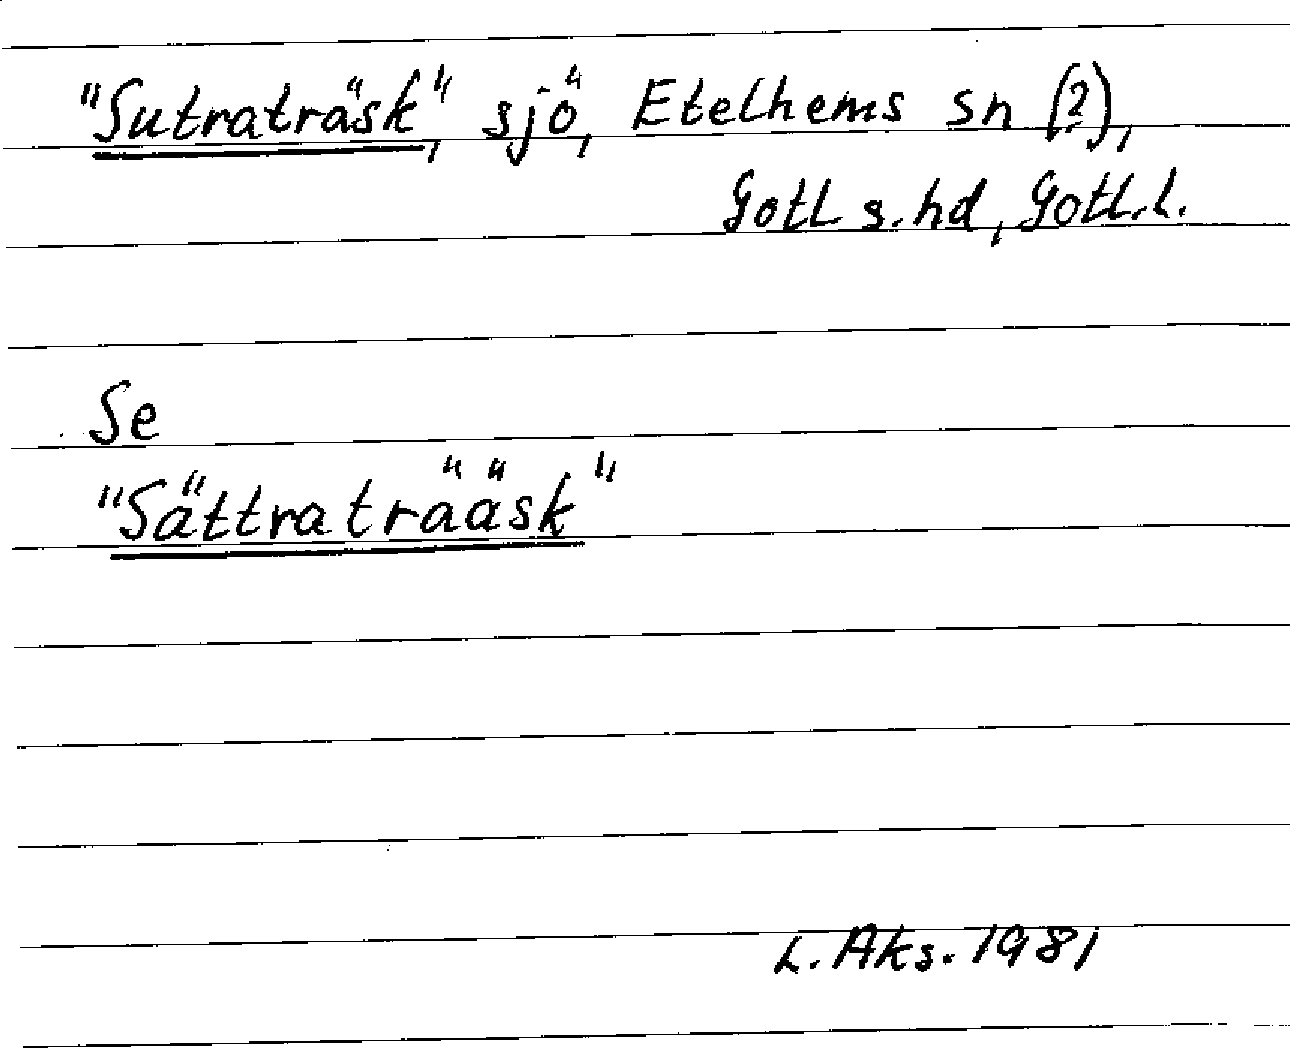 "Sutraträsk", sjö, Etelhems sn (?),
Gotl s. hd, Gotl. l.
Se
"Sättraträäsk"
L. Aks. 1981